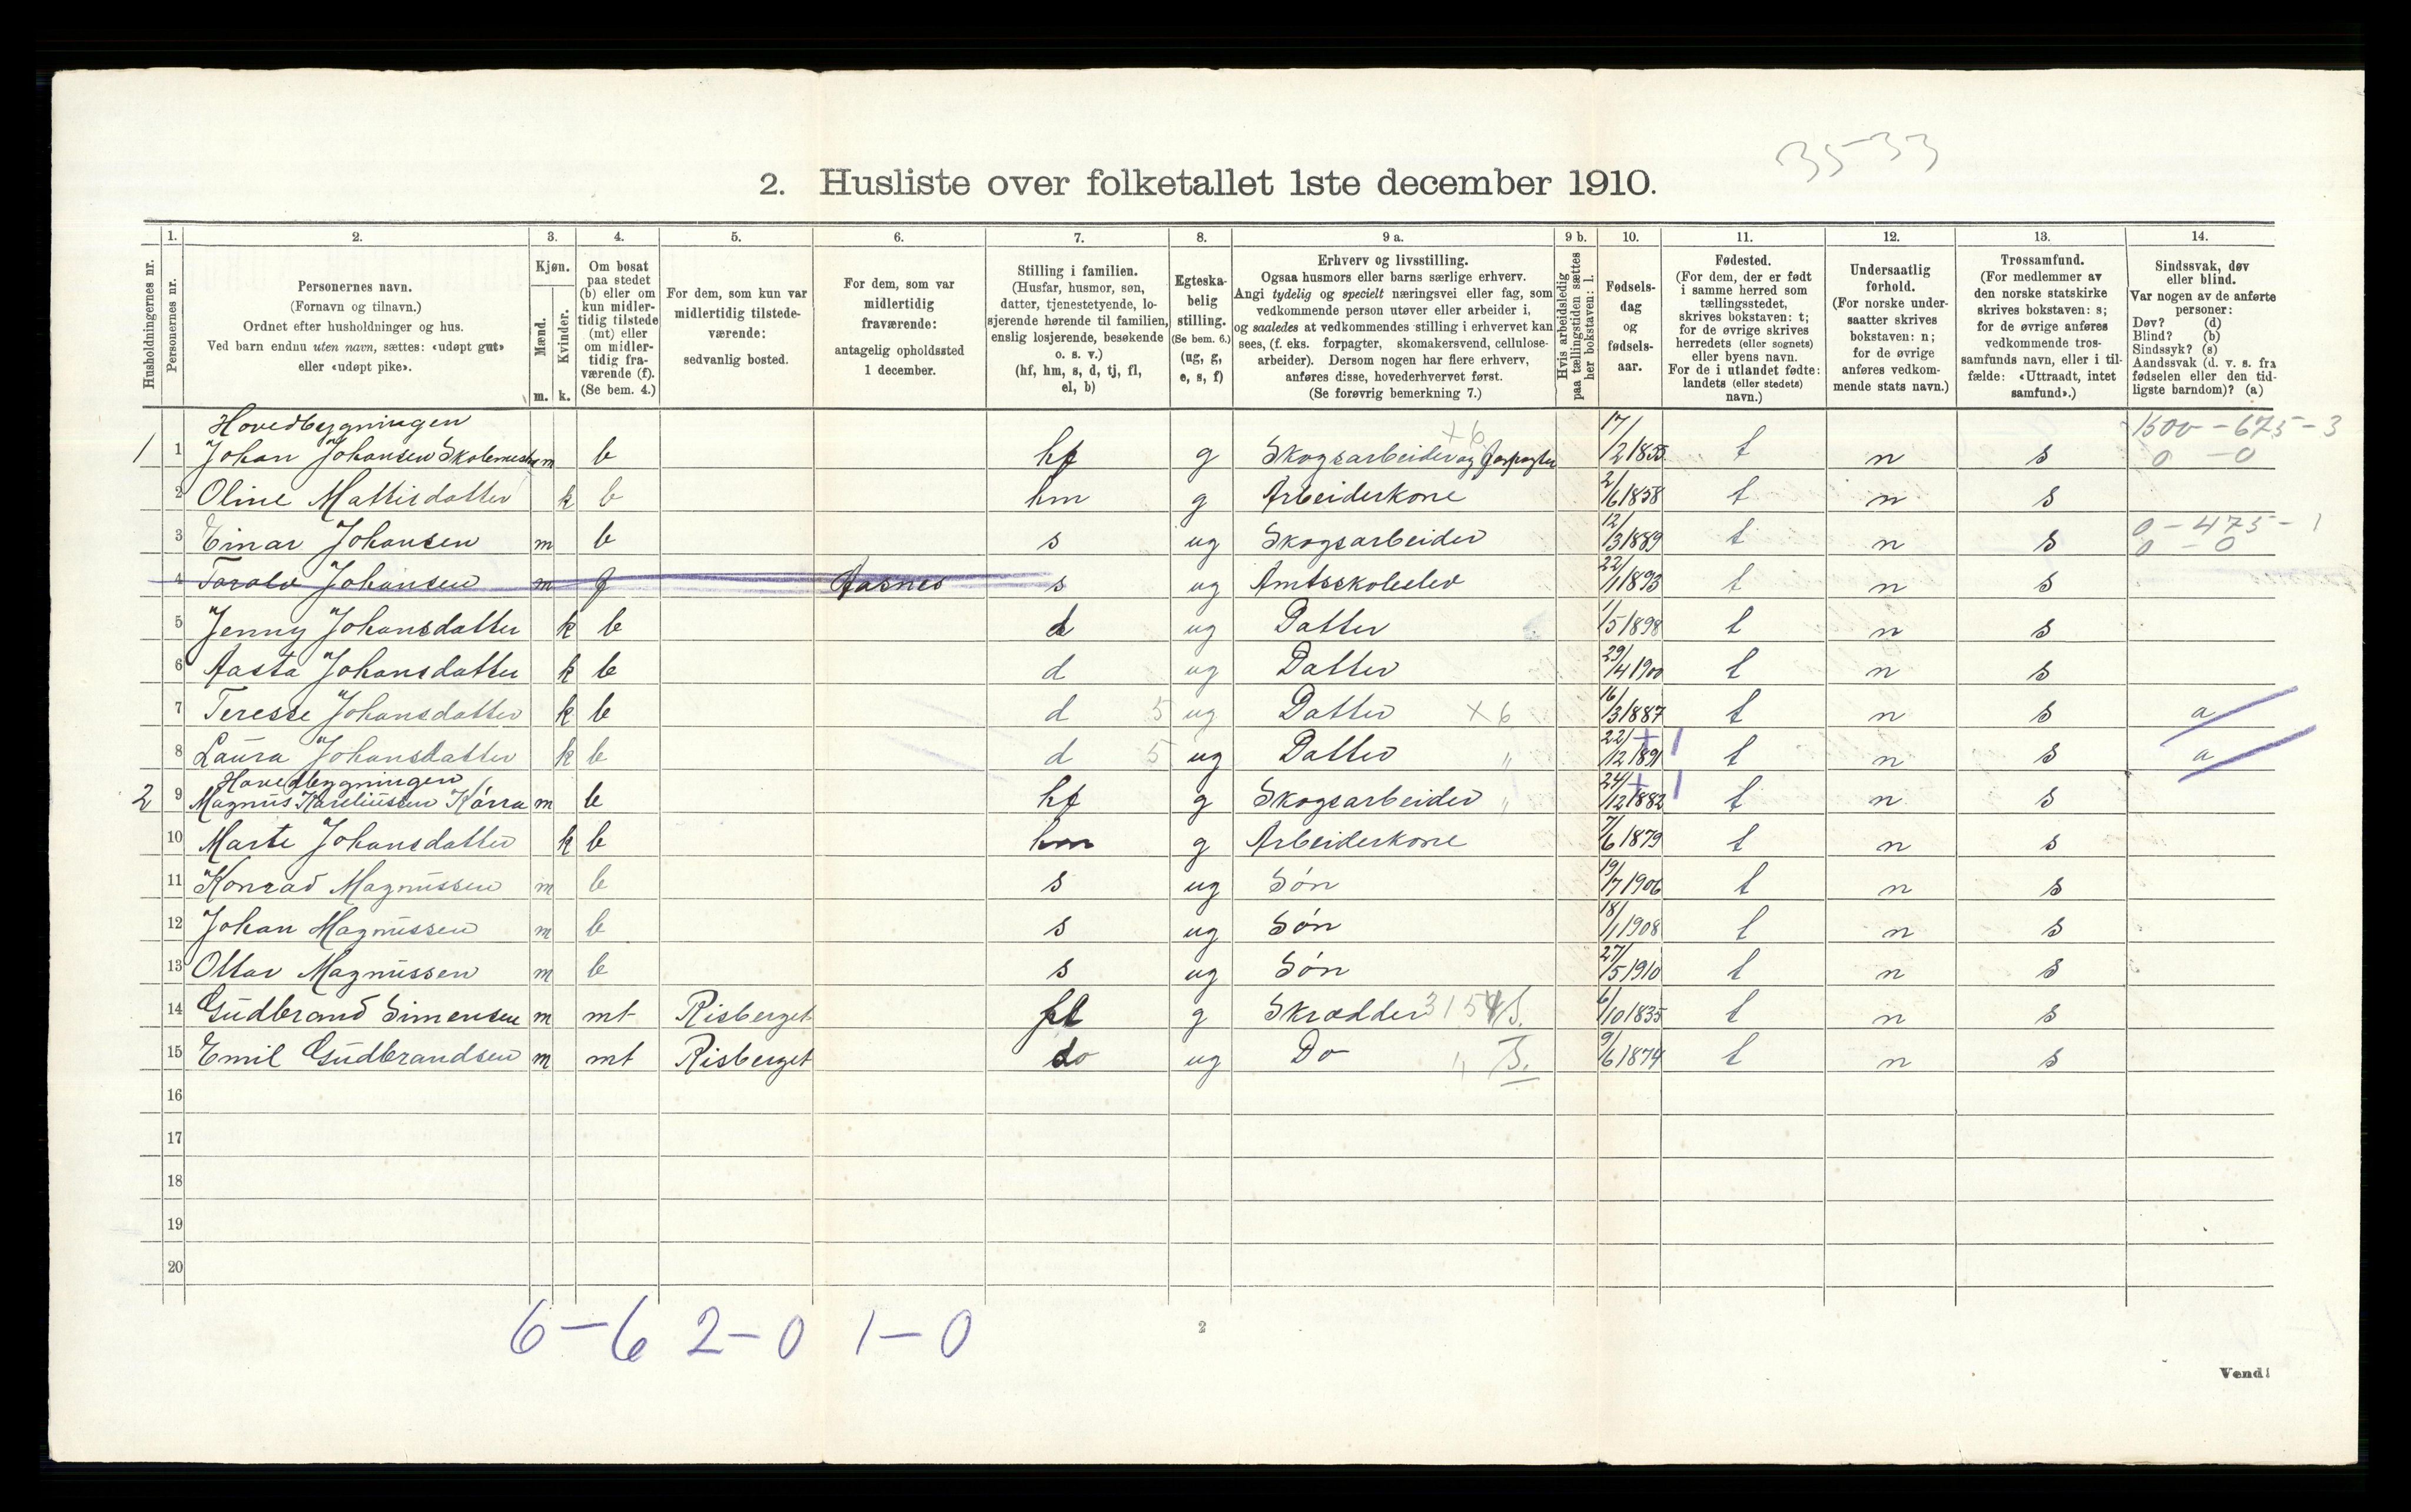 35 33
2. Husliste over folketallet 1ste december 1910.
1. 2. 3. 4. 5. 6. 7. 8. 9 a. 9 b. 10. 11. 12. 13. 14.
Husholdningernes nr.
Personernes nr.
Personernes navn.
(Fornavn og tilnavn.)
Ordnet efter husholdninger og hus.
Ved barn endnu uten navn, sættes: «udøpt gut»
eller «udøpt pike».
Kjøn.
Mænd.
Kvinder.
m. k.
Om bosat
paa stedet
(b) eller om
kun midler-
tidig tilstede
(mt) eller
om midler-
tidig fra-
værende (f).
(Se bem. 4.)
For dem, som kun var
midlertidig tilstede-
værende:
sedvanlig bosted.
For dem, som var
midlertidig
fraværende:
antagelig opholdssted
1 december.
Stilling i familien.
(Husfar, husmor, søn,
datter, tjenestetyende, lo-
sjerende hørende til familien,
enslig losjerende, besøkende
o. s. v.)
(hf, hm, s, d, tj, fl,
el, b)
Egteska-
belig
stilling.
(Se bem. 6.)
(ug, g,
e, s, f)
Erhverv og livsstilling.
Ogsaa husmors eller barns særlige erhverv.
Angi tydelig og specielt næringsvei eller fag, som
vedkommende person utøver eller arbeider i,
og saaledes at vedkommendes stilling i erhvervet kan
sees, (f. eks. forpagter, skomakersvend, cellulose-
arbeider). Dersom nogen har flere erhverv,
anføres disse, hovederhvervet først.
(Se forøvrig bemerkning 7.)
Hvis arbeidsledig
paa tællingstiden sættes
her bokstaven: l.
Fødsels-
dag
og
fødsels-
aar.
Fødested.
(For dem, der er født
i samme herred som
tællingsstedet,
skrives bokstaven: t;
for de øvrige skrives
herredets (eller sognets)
eller byens navn.
For de i utlandet fødte:
landets (eller stedets)
navn.)
Undersaatlig
forhold.
(For norske under-
saatter skrives
bokstaven: n;
for de øvrige
anføres vedkom-
mende stats navn.)
Trossamfund.
(For medlemmer av
den norske statskirke
skrives bokstaven: s;
for de øvrige anføres
vedkommende tros-
samfunds navn, eller i til-
fælde: «Uttraadt, intet
samfund».)
Sindssvak, døv
eller blind.
Var nogen av de anførte
personer:
Døv? (d)
Blind? (b)
Sindssyk? (s)
Aandssvak (d. v. s. fra
fødselen eller den tid-
ligste barndom)? (a)
Hovedbygningen 1500 - 675 - 3
1 1 Johan Johansen Skolemester m b hf g Skogsarbeider og Forpagter x 6 17/2 1855 t n s 0 - 0
2 Oline Mattisdatter k b hm g Arbeiderkone 2/6 1858 t n s
3 Einar Johansen m b s ug Skogsarbeider 12/3 1889 t n s 0 - 475 - 1 0 - 0
4 Johansen m f Aasnes s ug Amtsskoleelev 22/1 1893 t n s
5 Jenny Johansdatter k b d ug Datter 1/5 1898 t n s
6 Aasta Johansdatter k b d ug Datter 29/4 1900 t n s
7 Teresse Johansdatter k b d 5 ug Datter x 6 16/3 1887 t n s a
8 Laura Johansdatter k b d 5 ug Datter " 22/12 1891 t n s a
Hovedbygningen
2 9 Magnus Kareliussen Kårra m b hf g Skogsarbeider " 24/12 1882 t n s
10 Marte Johansdatter k b hm g Arbeiderkone 7/6 1879 t n s
11 Konrad Magnussen m b s ug Søn 19/7 1906 t n s
12 Johan Magnussen m b s ug Søn 18/1 1908 t n s
13 Ottar Magnussen m b s ug Søn 27/5 1910 t n s
14 Gudbrand Simensen m mt Risberget fl g Skrædder 6/10 1835 t n s
15 Emil Gudbrandsen m mt Risberget do ug Do " 9/6 1874 t n s
16
17
18
19
20
6 - 6 2 - 0 1 - 0
2
Vend!